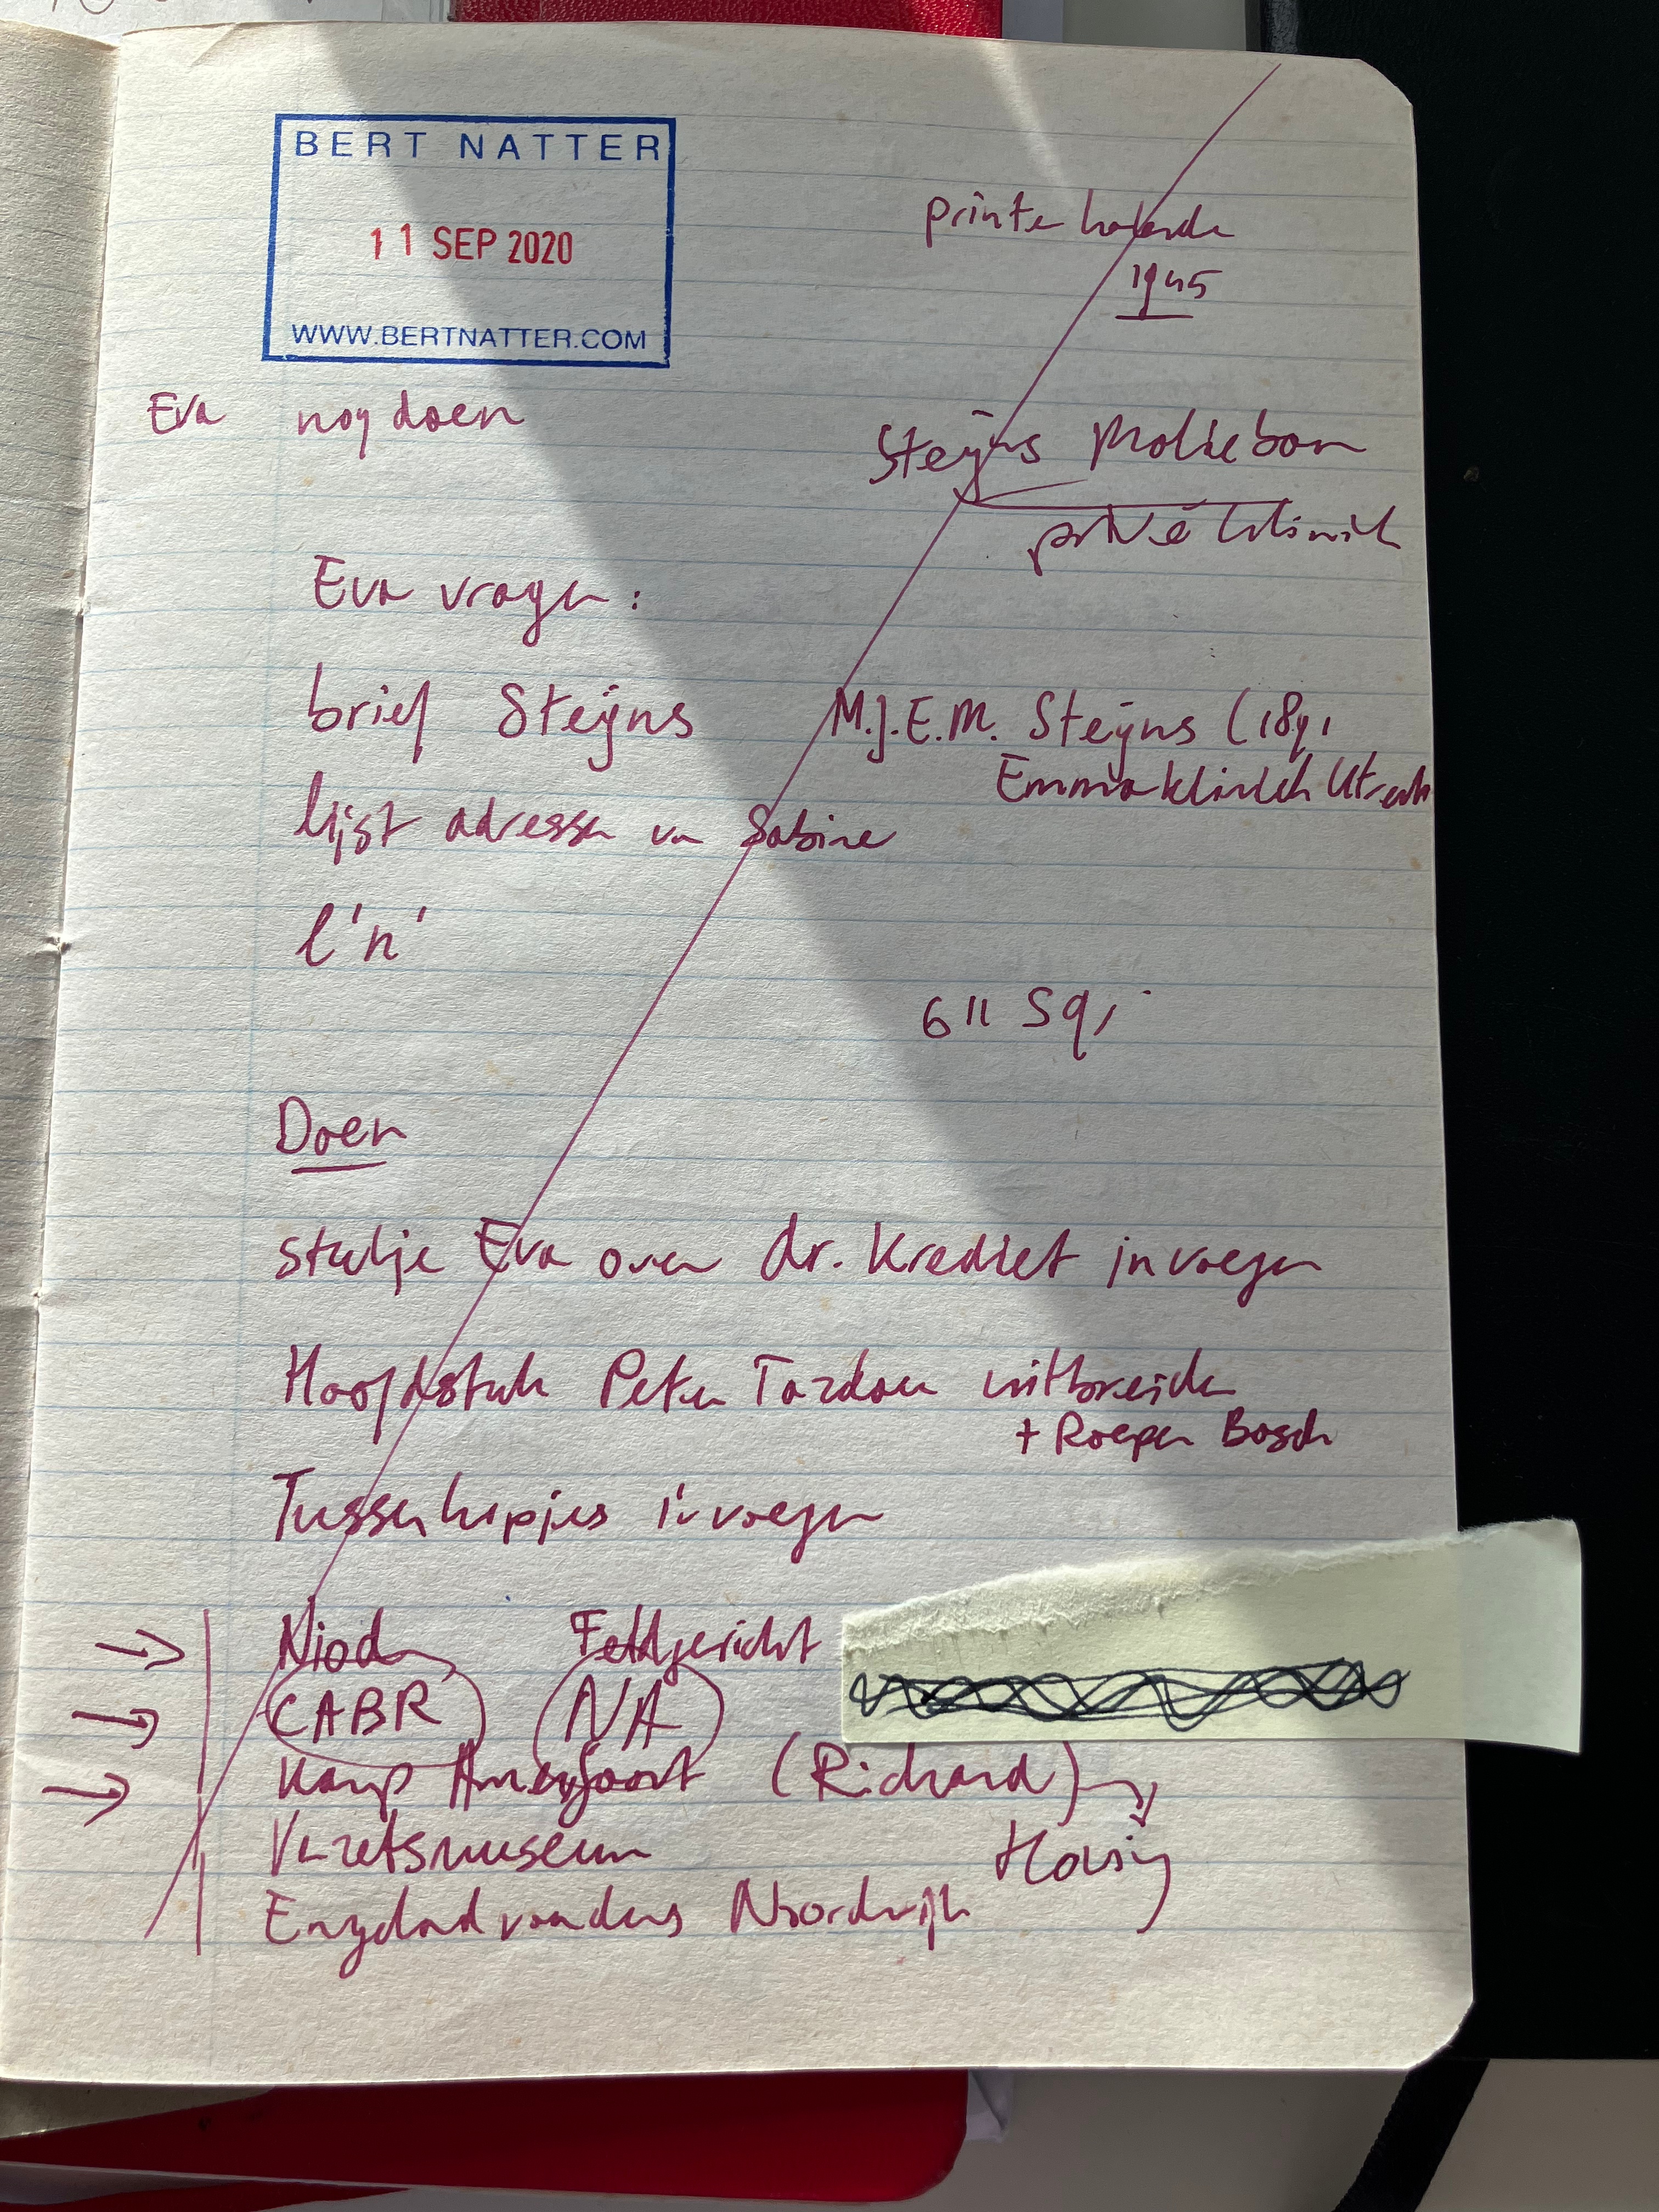 BERT NATTER
11 SEP 2020
WWW.BERTNATTER.COM
printen
1945
Eva nog doen
Steijns
privékliniek
Eva vragen:
brief Steijns M.J.E.M. Steijns (1891
Emmakliniek Utrecht
lijst adressen van Sabine
l'n'
611
Doen
stukje Eva over dr. Krediet invoegen
Hoofdstuk Peter Tazelaar uitbreiden
+ Roeper Bosch
Tussenkopjes invoegen
Niod Feldgericht
CABR NA
Kamp Amersfoort (Richard)
Verzetsmuseum
Engelandvaarders Noordwijk